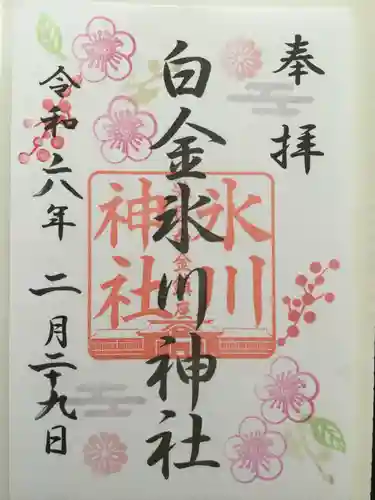 奉拝
白金氷川神社
氷川
神社
令和六年二月二十九日